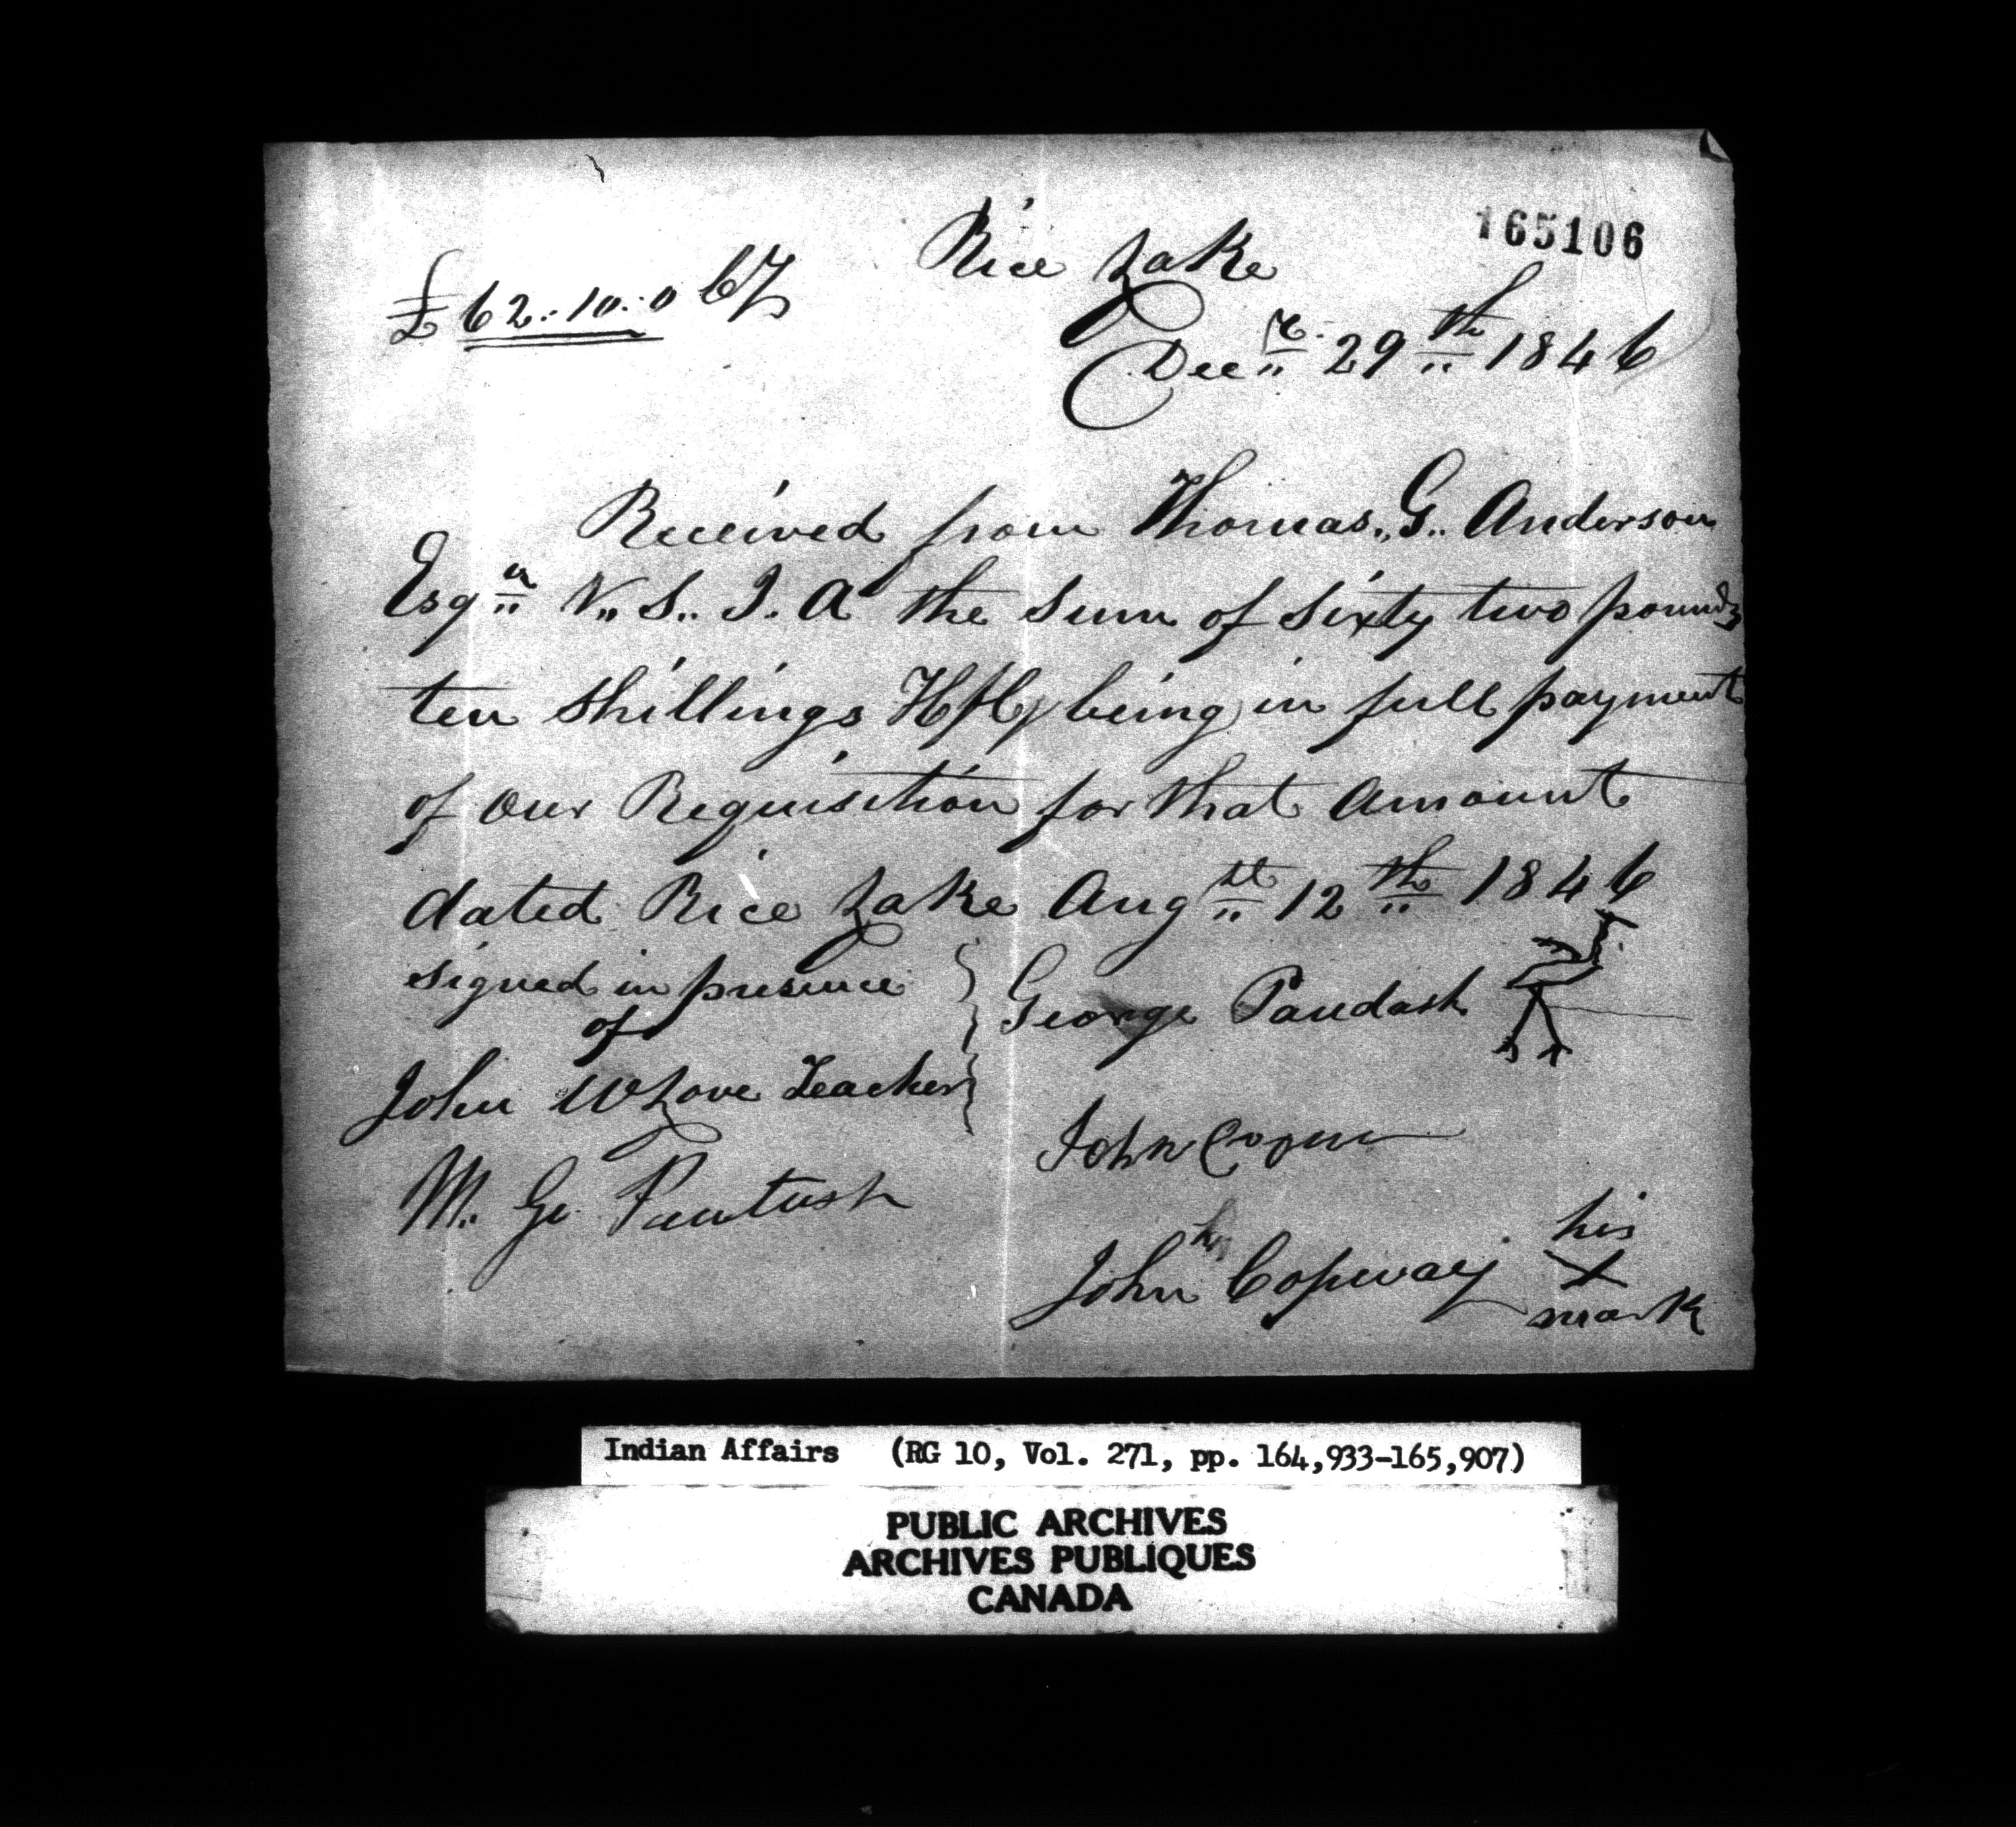 165106
Rice Lake
£62..10..0 Cy
Decr 29th 1846
Received from Thomas,, G.. Anderson
Esqr V,, S.. I. A the sum of sixty two pounds
ten shillings H/Cy being in full payment
of our Requisition for that amount
dated Rice Lake Augst 12th 1846
signed in presence
of
John W Love Teacher
M.. G. Pautash
George Paudash
John Crow
John Copway his
X
mark
Indian Affairs (RG 10, Vol. 271, pp. 164,933-165,907)
PUBLIC ARCHIVES
ARCHIVES PUBLIQUES
CANADA